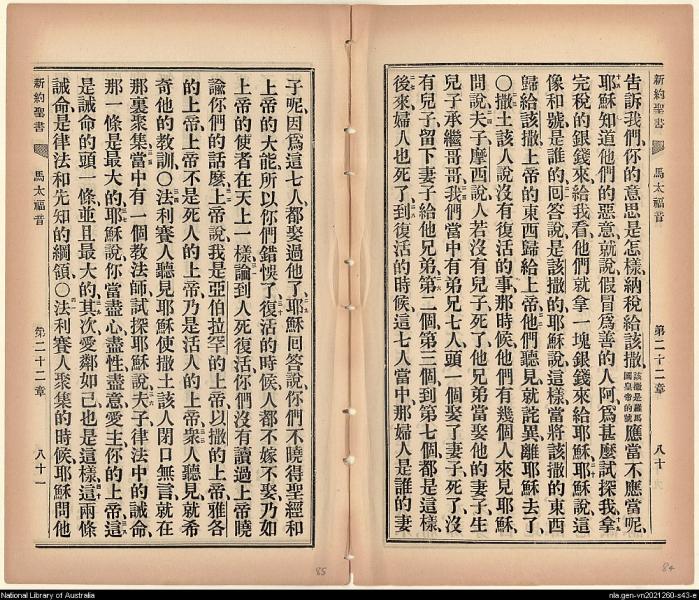 新約聖書
馬太福音
第二十二章
八十
告訴我們、你的意思是怎樣、納稅給該撒、該撒是羅馬國皇帝的號應當不應當呢、
耶穌知道他們的惡意、就說、假冒爲善的人阿、爲甚麼試探我、拿
完稅的銀錢來給我看、他們就拿一塊銀錢來給耶穌、耶穌說、這
像和號是誰的、回答說、是該撒的、耶穌說、這樣、當將該撒的東西
歸給該撒、上帝的東西歸給上帝、他們聽見、就詫異、離耶穌去了、
〇撒土該人說沒有復活的事、那時候他們有幾個人來見耶穌、
問說、夫子、摩西說、人若沒有兒子死了、他兄弟當娶他的妻子、生
兒子承繼哥哥、我們當中有弟兄七人、頭一個娶了妻子死了、沒
有兒子、留下妻子給他兄弟、第二個、第三個、到第七個、都是這樣、
後來婦人也死了、到復活的時候、這七人當中、那婦人是誰的妻
子呢、因爲這七人都娶過他了、耶穌回答說、你們不曉得聖經和
上帝的大能、所以你們錯悞了、復活的時候、人都不嫁不娶、乃如
上帝的使者在天上一樣、論到人死復活、你們沒有讀過上帝曉
諭你們的話麼、上帝說、我是亞伯拉罕的上帝、以撒的上帝、雅各
的上帝、上帝不是死人的上帝、乃是活人的上帝、衆人聽見、就希
奇他的教訓、〇法利賽人聽見耶穌使撒土該人閉口無言、就在
那裏聚集、當中有一個教法師試探耶穌說、夫子、律法中的誡命、
那一條是最大的、耶穌說、你當盡心盡性盡意愛主你的上帝、這
是誡命的頭一條、並且最大的、其次愛鄰如己、也是這樣、這兩條
誡命、是律法和先知的綱領、〇法利賽人聚集的時候、耶穌問他
新約聖書
馬太福音
第二十二章
八十一
85
84
National Library of Australia
nla.gen-vn2021260-s43-e